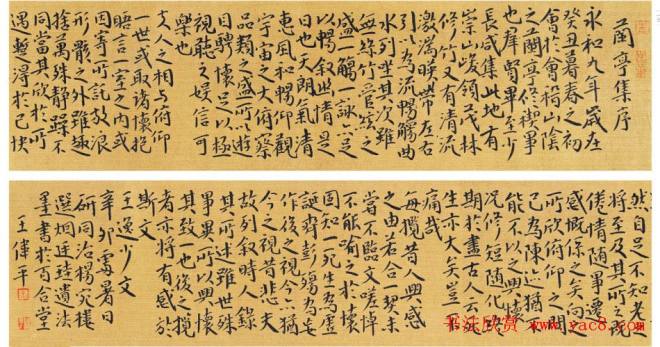 蘭亭集序
永和九年歲在
癸丑暮春之初
會於會稽山陰
之蘭亭修稧事
也群賢畢至少
長咸集此地有
崇山峻領茂林
修竹又有清流
激湍暎帶左右
引以為流觴曲
水列坐其次雖
無絲竹管弦之
盛一觴一詠亦足
以暢敘幽情是
日也天朗氣清
惠風和暢仰觀
宇宙之大俯察
品類之盛所以遊
目騁懷足以極
視聽之娛信可
樂也
夫人之相與俯仰
一世或取諸懷抱
晤言一室之內或
因寄所託放浪
形骸之外雖趣
捨萬殊靜躁不
同當其欣於所
遇暫得於己快
然自足不知老之
將至及其所之既
倦情隨事遷
感慨係之矣向之
所欣俯仰之間
已為陳迹猶不
能不以之興懷
況修短隨化終
期於盡古人云死
生亦大矣豈不
痛哉
每攬昔人興感
之由若合一契未
嘗不臨文嗟悼
不能喻之於懷
固知一死生為虛
誕齊彭殤為妄
作後之視今亦猶
今之視昔悲夫
故列敘時人錄
其所述雖世殊
事異所以興懷
其致一也後之攬
者亦將有感於
斯文
王逸少文
辛卯處暑日
研同治楊光樓
選烟廷珪遺法
墨書於百合堂
王偉平
书法欣赏 www.yac8.com